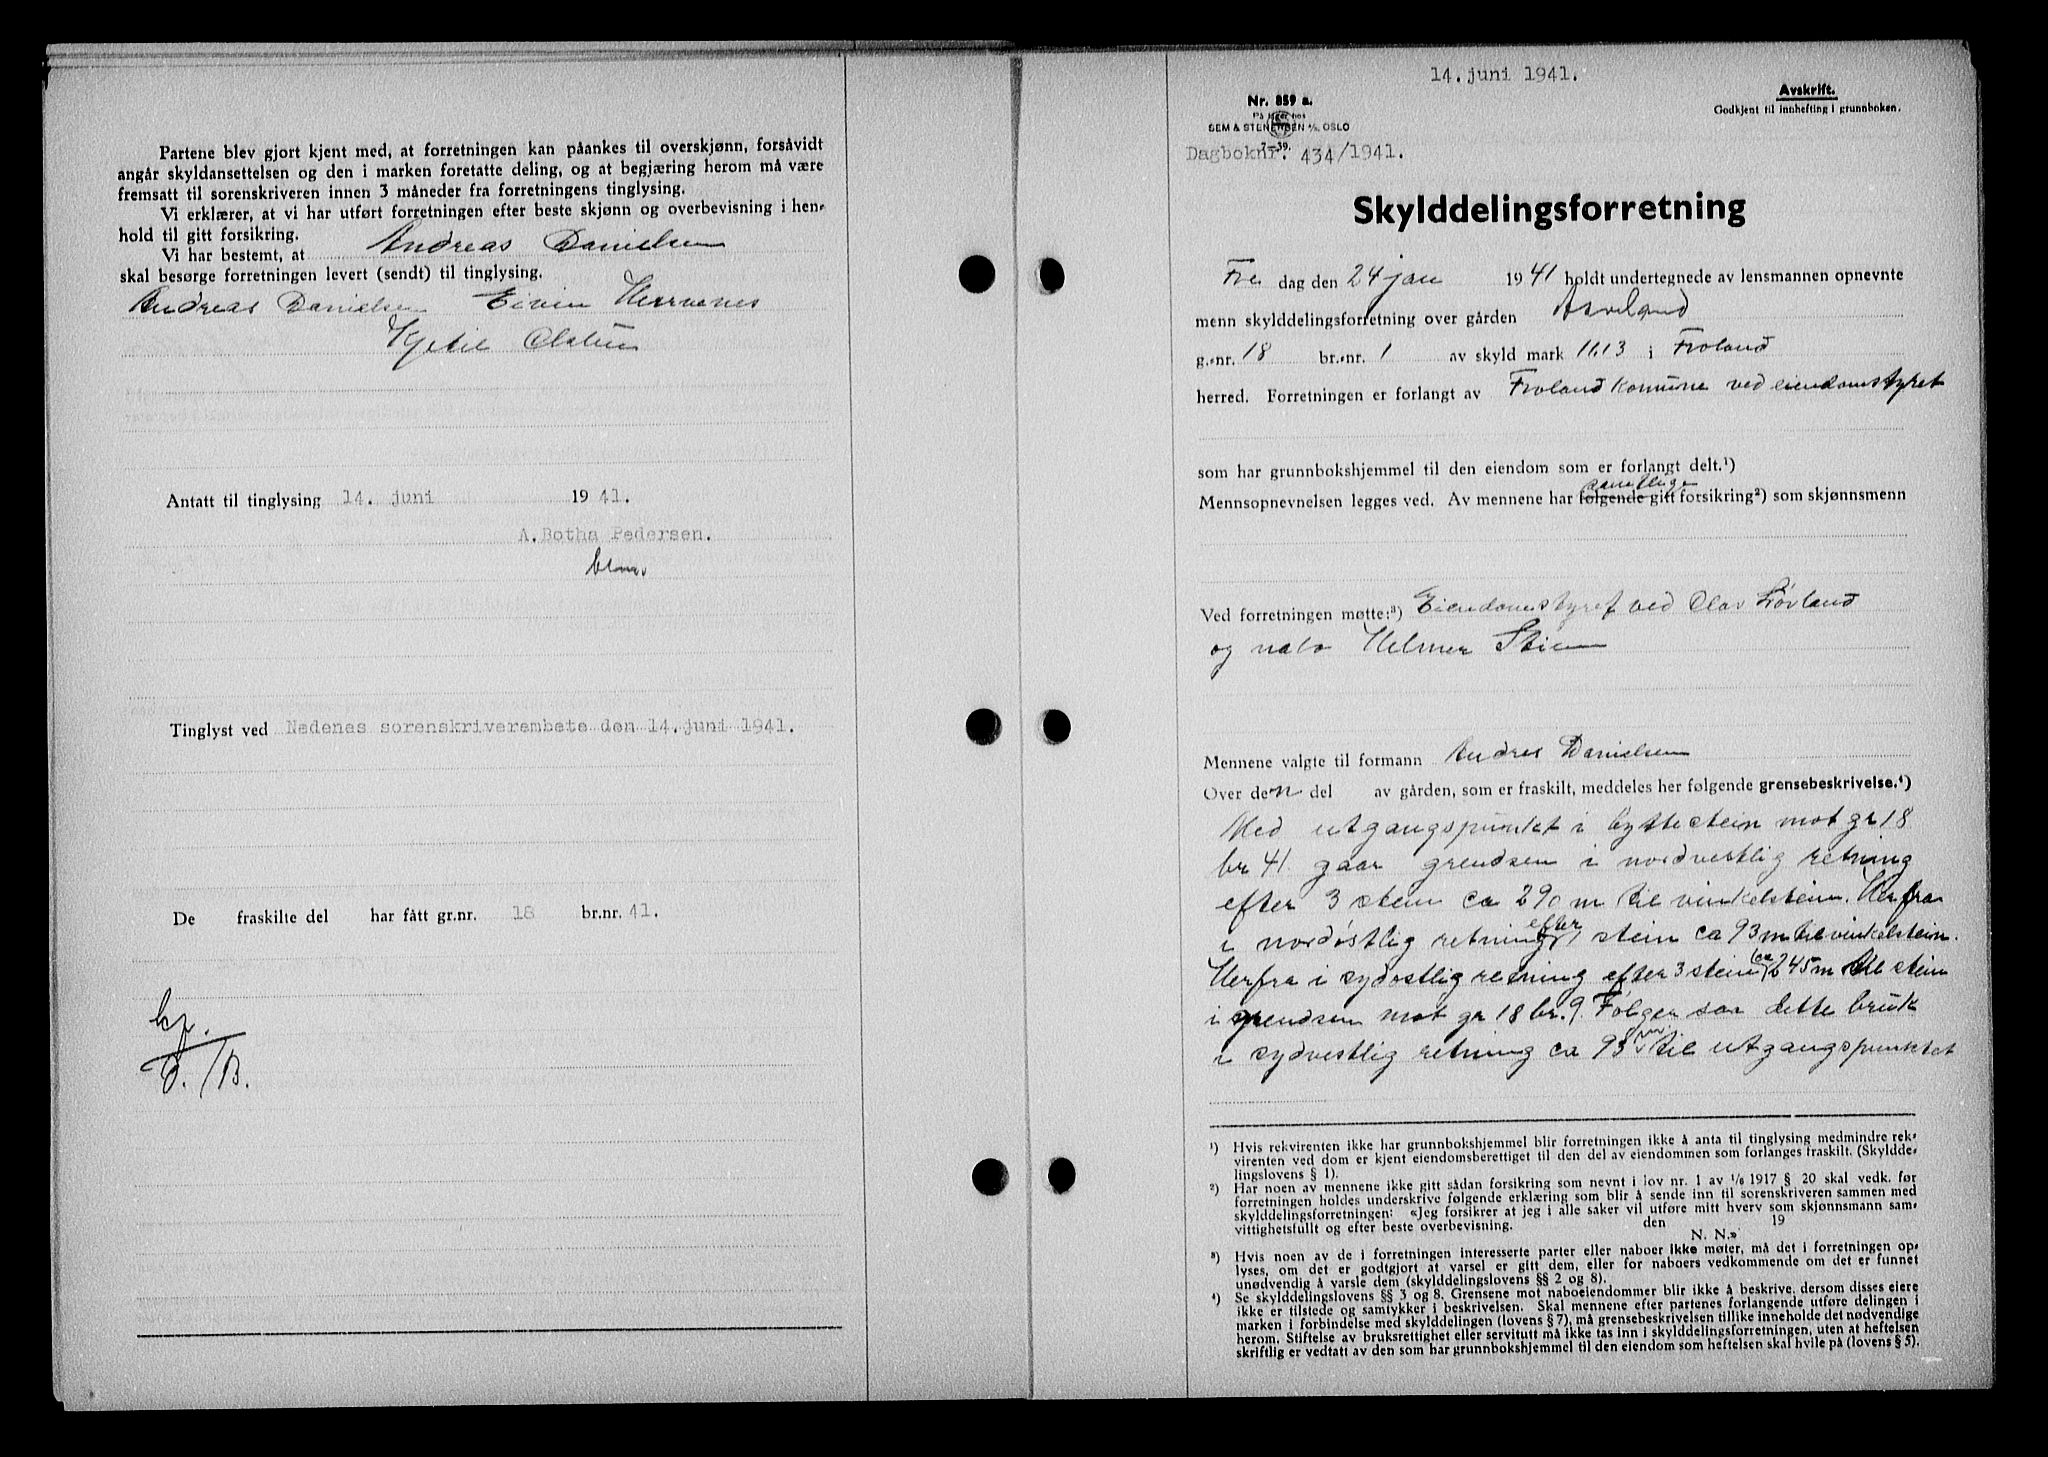 Partene blev gjort kjent med, at forretningen kan påankes til overskjønn, forsåvidt
angår skyldansettelsen og den i marken foretatte deling, og at begjæring herom må være
fremsatt til sorenskriveren innen 3 måneder fra forretningens tinglysing.
Vi erklærer, at vi har utført forretningen efter beste skjønn og overbevisning i hen-
hold til gitt forsikring.
Vi har bestemt, at Andreas Danielsen
skal besørge forretningen levert (sendt) til tinglysing.
Andreas Danielsen Eivin Herrvenes
Kjetil Olstun
Antatt til tinglysing 14. juni 1941.
A. Botha Pedersen.
Tinglyst ved Nedenes sorenskriverembete den 14. juni 1941.
De fraskilte del har fått gr.nr. 18 br.nr. 41.
14. juni 1941.
Avskrift.
Godkjent til innhefting i grunnboken.
Nr. 859 a.
På lager hos
SEM & STENERSEN A/S. OSLO
7-39.
Dagboknr. 434/1941.
Skylddelingsforretning
Fre dag den 24 jan 1941 holdt undertegnede av lensmannen opnevnte
menn skylddelingsforretning over gården
g.-nr. 18 br.-nr. 1 av skyld mark 11.13 i Froland
herred. Forretningen er forlangt av Froland komune ved eiendomstyret
som har grunnbokshjemmel til den eiendom som er forlangt delt.¹)
samtlige
Mennsopnevnelsen legges ved. Av mennene har følgende gitt forsikring²) som skjønnsmenn
Ved forretningen møtte:³) Eiendomstyret ved Olav Løvland
og nabo Helmer Stien
Mennene valgte til formann Andres Danielsen
Over den del av gården, som er fraskilt, meddeles her følgende grensebeskrivelse.⁴)
Med utgangspunkt i byttestein mot gr 18
br 41. gaar grendsen i nordvestlig retning
efter 3 stein ca 290 m til vinkelstein. Herfra
i nordøstlig retning efter 1 stein ca 93 m til vinkelstein.
Herfra i sydostlig retning efter 3 stein ca 245 m til stein
i grendsen mot gr 18 br. 9. Følger saa dette bruk
i sydvestlig retning ca 93 m til utgangspunktet
¹) Hvis rekvirenten ikke har grunnbokshjemmel blir forretningen ikke å anta til tinglysing medmindre rek-
virenten ved dom er kjent eiendomsberettiget til den del av eiendommen som forlanges fraskilt. (Skyldde-
lingslovens § 1).
²) Har noen av mennene ikke gitt sådan forsikring som nevnt i lov nr. 1 av 1/6 1917 § 20 skal vedk. før
forretningen holdes underskrive følgende erklæring som blir å sende inn til sorenskriveren sammen med
skylddelingsforretningen: «Jeg forsikrer at jeg i alle saker vil utføre mitt hverv som skjønnsmann sam-
vittighetsfullt og efter beste overbevisning. den 19
N. N.»
³) Hvis noen av de i forretningen interesserte parter eller naboer ikke møter, må det i forretningen op-
lyses, om det er godtgjort at varsel er gitt dem, eller for naboers vedkommende om det er funnet
unødvendig å varsle dem (skylddelingslovens §§ 2 og 8).
⁴) Se skylddelingslovens §§ 3 og 8. Grensene mot naboeiendommer blir ikke å beskrive, dersom disses eiere
ikke er tilstede og samtykker i beskrivelsen. Skal mennene efter partenes forlangende utføre delingen i
marken i forbindelse med skylddelingen (lovens § 7), må grensebeskrivelsen tillike inneholde det nødvendige
herom. Stiftelse av bruksrettighet eller servitutt må ikke tas inn i skylddelingsforretningen, uten at heftelsen
skriftlig er vedtatt av den som har grunnbokshjemmel til den eiendom som heftelsen skal hvile på (lovens § 5).